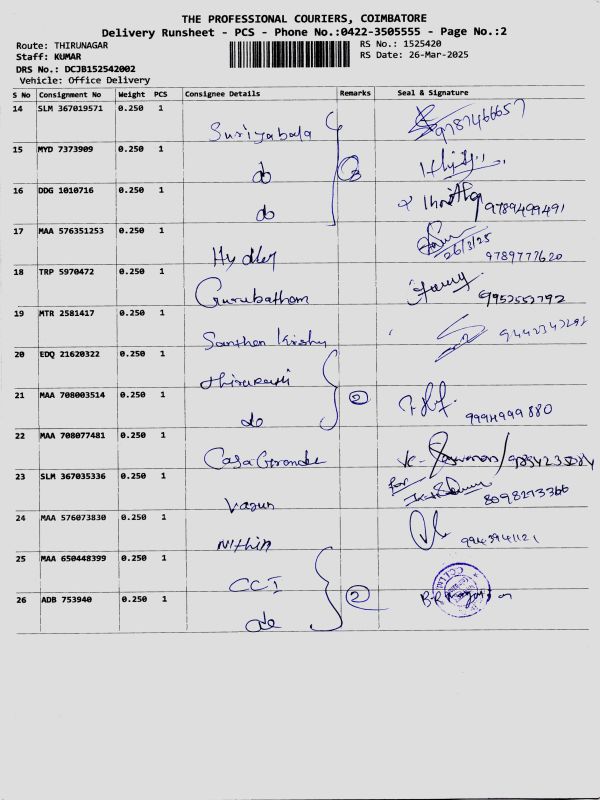 THE PROFESSIONAL COURIERS, COIMBATORE
Delivery Runsheet - PCS - Phone No.:0422-3505555 - Page No.:2
Route: THIRUNAGAR
RS No.: 1525420
Staff: KUMAR
RS Date: 26-Mar-2025
DRS No.: DCJB152542002
Vehicle: Office Delivery
S No Consignment No Weight PCS Consignee Details Remarks Seal & Signature
14 SLM 367019571 0.250 1 Suriyabala 9787466657
15 MYD 7373909 0.250 1 do 3
16 DDG 1010716 0.250 1 do 9789499491
17 MAA 576351253 0.250 1 Hydler 26/3/25 9789777620
18 TRP 5970472 0.250 1 Gurubatham 9952552792
19 MTR 2581417 0.250 1 Santhan Krishy
20 EDQ 21620322 0.250 1 thirupathi
21 MAA 708003514 0.250 1 do 2 9994999880
22 MAA 708077481 0.250 1 CasaGrande
23 SLM 367035336 0.250 1 Varun for 8098273366
24 MAA 576073830 0.250 1 Nithin 9943941121
25 MAA 650448399 0.250 1 CCI
26 ADB 753940 0.250 1 do 2